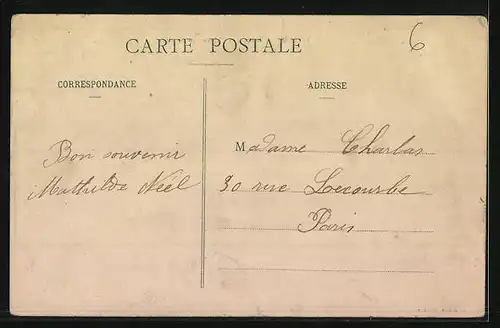 CARTE POSTALE
6
CORRESPONDANCE
ADRESSE
Bon souvenir
Mathilde Néel
Madame Charlas
30 rue Lecourbe
Paris